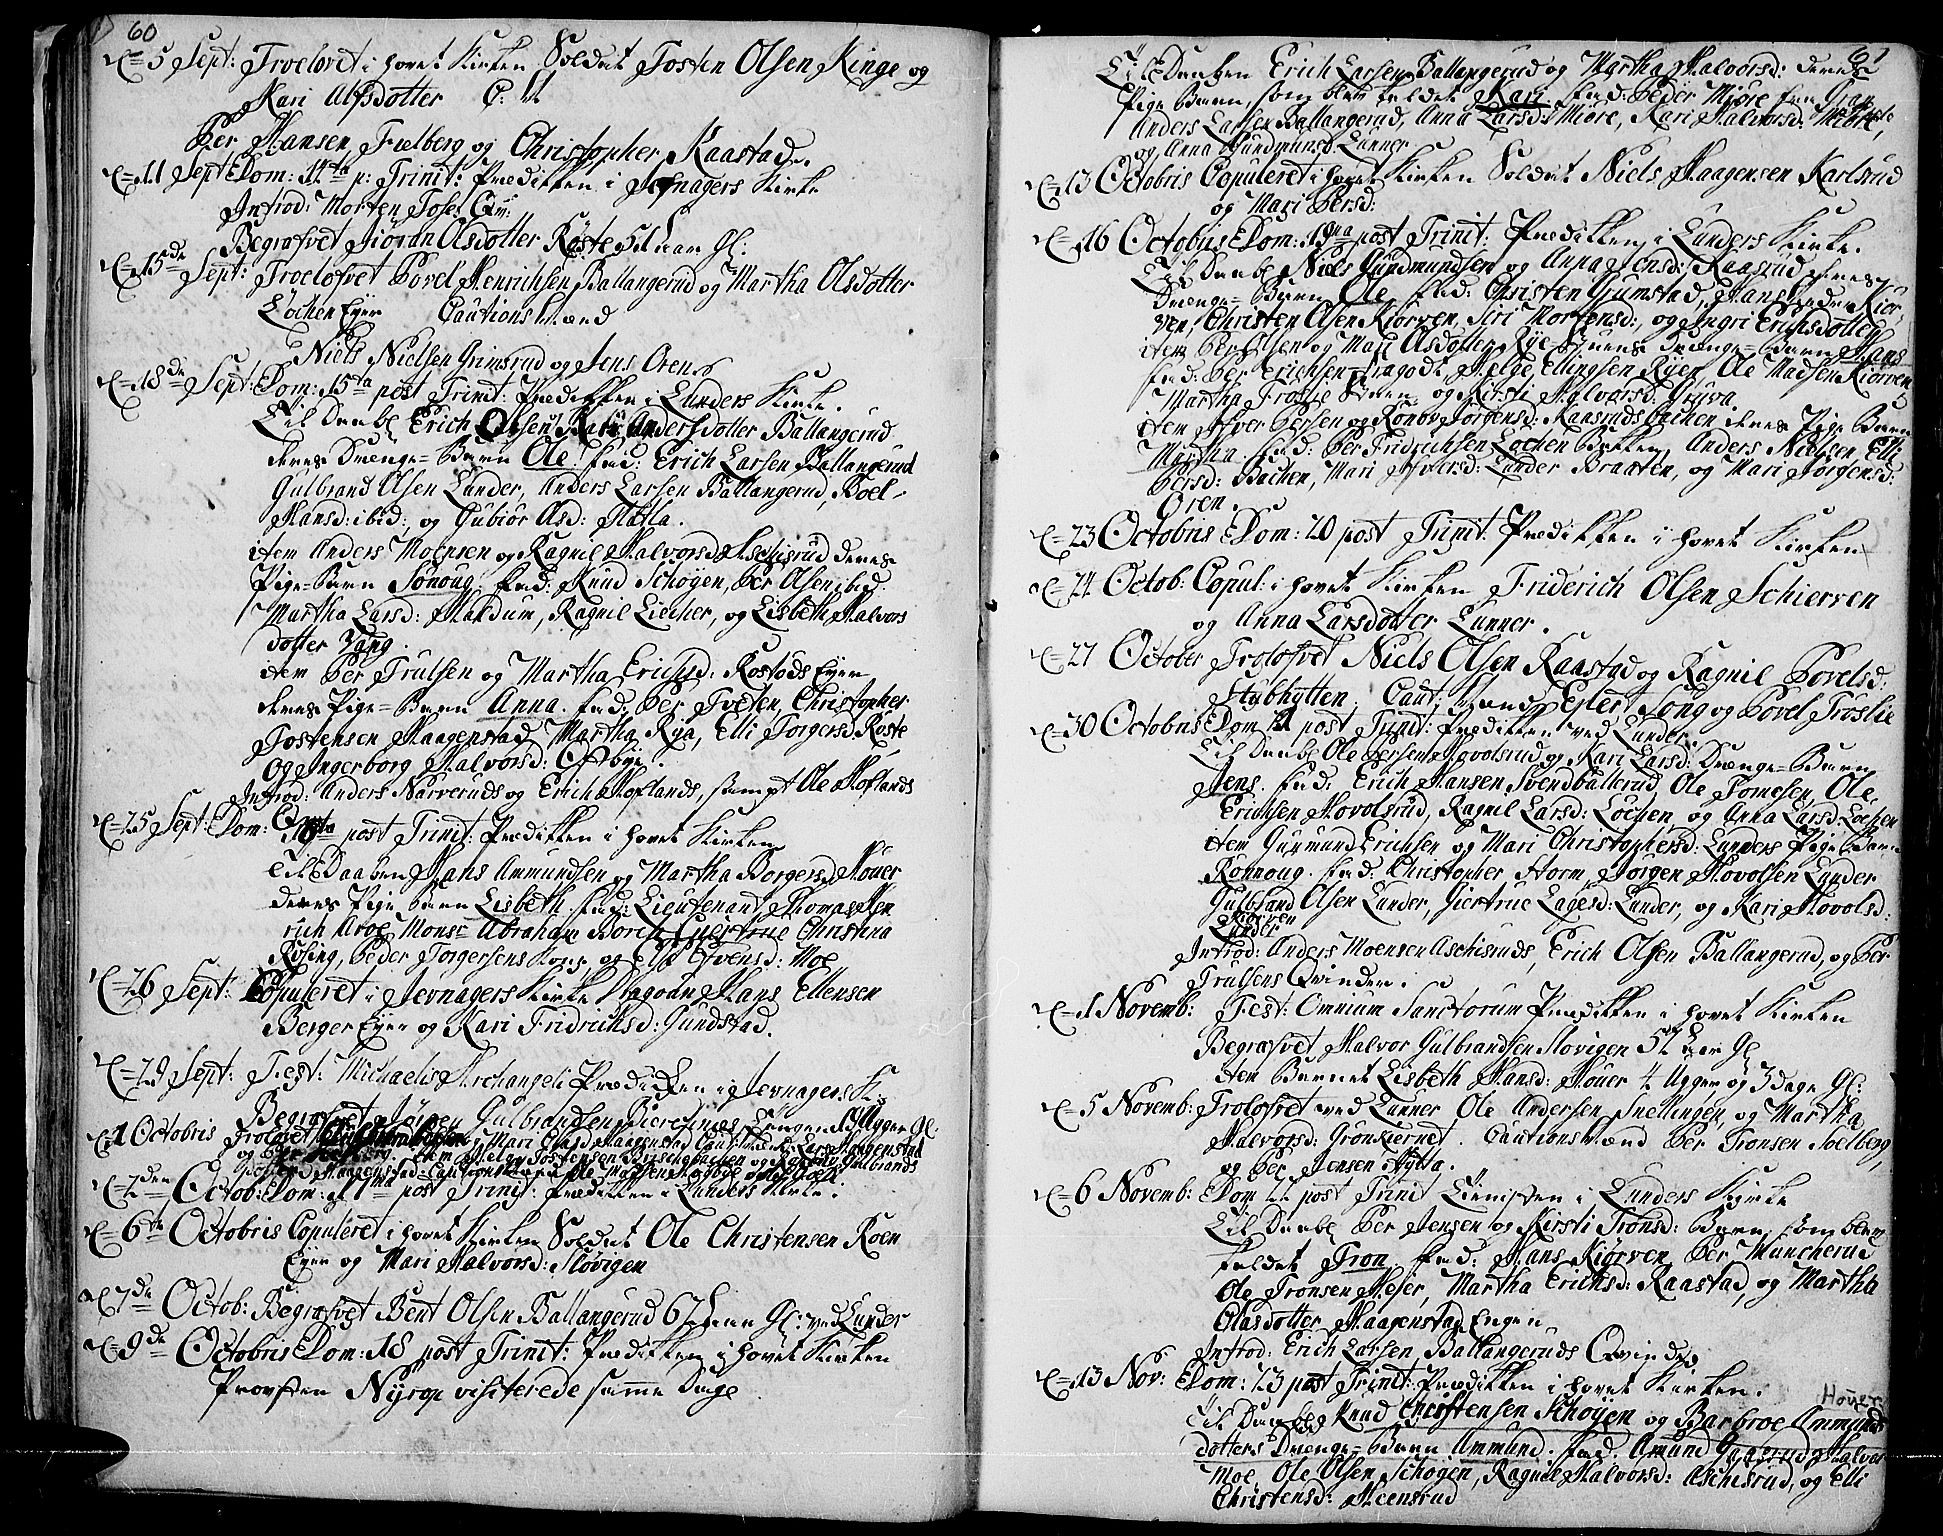 60
5 Sept: Troelovet i hovet Kirken Soldat Tosten Olsen Kinge og
Kari Alfsdotter C: M
Per Hansen Fuelberg og Christopher Raastad.
11 Sept Dom: 14ta p: Trinit: Prædikken i Jefnagers Kirke
Introd: Morten Toses Qv:
Begrafvet Jöran Asdotter Röste 51 Aar Gl:
15de Sept: Troelofvet Povel Henrichsen Ballangerud og Martha Olsdotter
Lochen Eyer Cautions Mænd
Niels Nielsen Grimsrud og Jens Oren
18de Sept: Dom: 15ta post Trinit: Prædikken i Lunders Kirke.
Til Daabe Erich Olsen Andersdotter Ballangerud
deres Drenge-Barn Ole. fad: Erich Larsen Ballangerud
Gulbrand Olsen Lunder, Anders Larsen Ballangerud, Boel
Hansd: ibid:, og Gubiör Asd: Hatla.
item Anders Moensen og Ragnil Halvorsd: Aschisrud deres
Pige-Barn Sönoug. fad: Knud Schöyen, Per Olsen ibid:
Martha Larsd: Haldum, Ragnil Liecher, og Lisbeth Halvors
dotter Vang.
item Per Trulsen og Martha Erichsd: Rostöds Eyer
deres Pige-Barn Anna. fad: Per Tveten, Christopher
Tostensen Haagenstad, Martha Rya, Elli Torgersd: Röste
og Ingerborg Halvorsd: Ostbye.
Introd: Anders Narveruds og Erich Hoflands, sampt Ole Hoflands
Qv:
25 Sept: Dom: 16ta post Trinit: Prædikken i hovet Kirken
Til Daaben Hans Ammundsen og Martha Borgersd: Höuer
deres Pige Barn Lisbeth. fad: Lieutenant Thomas Hen
rich Aroe, Monsr Abraham Borch, Giertrue Christina
Rosing, Peder Torgersens Kone, og Elsi Evensd: Moe
26 Sept: Copuleret i Jevnagers Kirke Dragoun Hans Ellensen
Berger Eyer og Kari Fridrichsd: Gundstad.
29 Sept: Fest: Michaelis Archangeli Prædicken i Jevnagers K:
Begrafvet Jörgen Gulbrandsen Bierchenes Eyer 13 Uger Gl:
1 Octobris Trolovet Mari Olasd: Haagenstad Caut: Mænd Lars Haagenstad
og Item Helge Tostensen og Gulbrands
Haagenstad: Cautions Mænd Ole Madsen
2den Octob: Dom: 17ma post Trinit: Prædikken i Lunders Kirke.
6te Octobris Copuleret i hovet Kirken Soldat Ole Christensen Roen
Eyer og Mari Halvorsd: Slövigen
7de Octob: Begrafvet Bent Olsen Ballangerud 67 Aar Gl: ved Lunder
9de Octobris Dom: 18 post Trinit: Prædikken i hovet Kirken
Provsten Nyrop visiterede samme Dage
61
Til Daaben Erich Larsen Ballangerud og Martha Halvorsd: deres
Pige Barn, som blev kaldet Kari. fad: Peder Miöre fra Gran
Anders Larsen Ballangerud, Anna Larsd: Miöre, Kari Halvorsd: Miöre,
og Anna Gundmunsd: Lunner.
13 Octobris Copuleret i hovet Kirken Soldat Niels Haagensen Karlsrud
og Mari Persd:
16 Octobris Dom: 19na post Trinit: Prædikken i Lunders Kirke.
Til Daabe Niels Gundmundsen og Anna Jensd: Raasrud deres
Drenge-Barn Ole. fad: Christen Grimstad, Hans Kiör
ven, Christen Olsen Kiörven, Siri Mortensd:, og Ingri Erichsdotter
item Per Olsen og Mari Asdotter Rye deres Drenge-Barn Hans
fad: Per Erichsen Dragod: Helge Ellingsen Ryen, Ole Madsen Kiörven,
Martha Froslie, og Kirsti Halvorsd: Gruva.
item Iver Persen og Ronnou Jörgensd: Raasrudsbachen deres Pige Barn
Martha. fad: Per Fridrichsen Lochen Bakken, Anders Nielsen, Elli
Persd: Bachen, Mari Iversd: Lunder Braaten, og Mari Jörgensd:
Oren.
23 Octobris Dom: 20 post Trinit: Prædikken i hovet Kirken
24 Octob: Copul: i hovet Kirken Friderich Olsen Schierven
og Anna Larsdotter Lunner.
27 October Trolofvet Niels Olsen Raastad og Ragnil Povelsd:
Stubhytten. Caut: Mænd Eylert Song og Povel Froslie
30 Octobris Dom 21 post Trinit: Prædikken ved Lunder.
Til Daabe Ole Persen Hovolsrud og Kari Larsd: Drenge-Barn
Jens. fad: Erich Hansen Svendballerud, Ole Tomesen, Ole
Erichsen Hovolsrud, Ragnil Larsd: Lochen, og Anna Larsd: Lochen
item Gunmund Erichsen og Mari Christophersd: Lunders Pige Barn
Ronnoug. fad: Christopher Horm, Jörgen Hovolsen Lunder
Gulbrand Olsen Lunder, Giertrue Lagesd: Lunder, og Kari Hovolsd:
Kiörven
Lunder
Introd: Anders Moensen Aschisruds, Erich Olsen Ballangerud, og Per
Trulsens Qvinder.
1 Novemb: Fest: Omnium Sanctorum Prædikken i hovet Kirken
Begrafvet Halvor Gulbrandsen Slovigen 52 Aar Gl
item Barnet Lisbeth Hansd: Höuer 4 Uger og 3 dage Gl:
5 Novemb: Trolofvet ved Lunner Ole Andersen Snellingen, og Martha
Halvorsd: Grönkiernet. Cautionsmænd Per Tronsen Soelberg,
og Per Jensen Hytta.
6 Novemb: Dom 22 post Trinit Tienisten i Lunders Kyrke
Til Daabe Per Jensen og Kirsti Tronsd: Barn, som blev
kaldet Tron. fad: Hans Kiörven, Per Muncherud
Ole Tronsen Hejer, Martha Erichsd: Raastad, og Martha
Olasdotter Haagenstad Engen
Introd: Erich Larsen Ballangeruds Qvinde
13 Nov: Dom: 23 post Trinit: Prædikken i hovet Kirken.
Höuer
Til Daabe Knud Christensen Schöyen og Barbroe Ammunds
dotters Drenge-Barn Ammund. fad: Amund Gaasrud, Halvor
Moe, Ole Olsen Schogen, Ragnil Halvorsd: Aschisrud, og Elli
Christensd: Heensrud